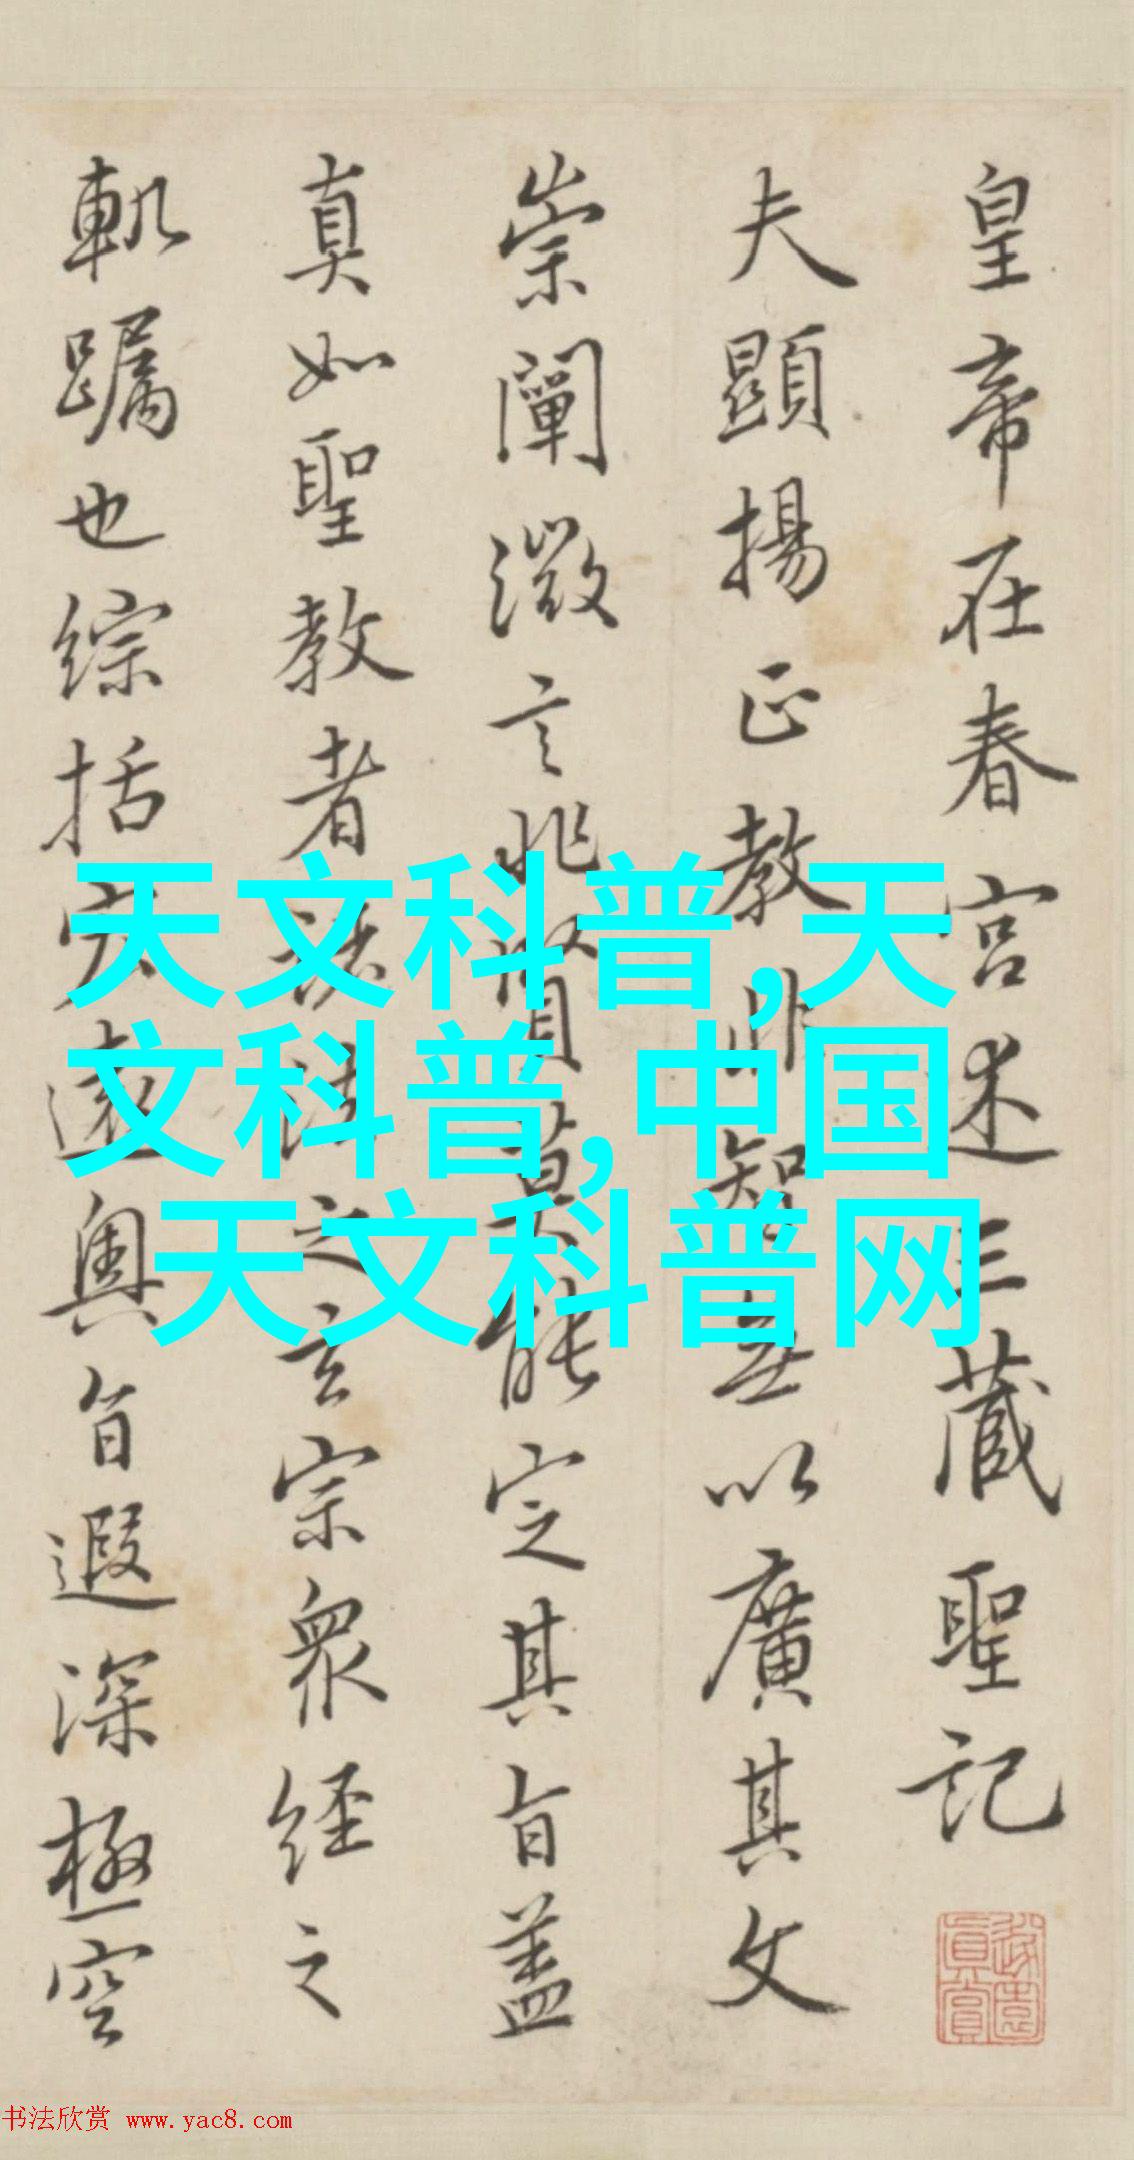 皇帝在春宮述三藏聖記
夫顯揚正教非智無以廣其文
崇闡微言非賢莫能定其旨蓋
真如聖教者諸法之玄宗衆經之
軌躅也綜括宏遠奧旨遐深極空
天文科普,天
文科普,中国
天文科普网
书法欣赏 www.yac8.com